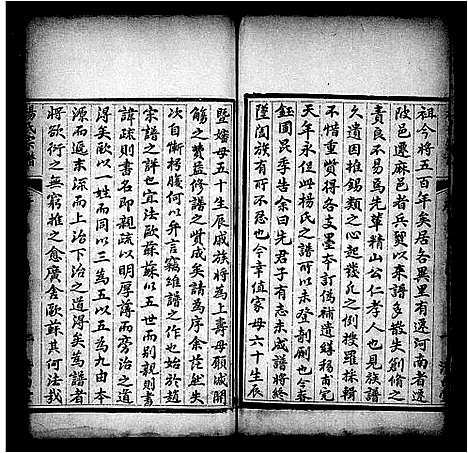 祖今將五百年矣居各異里有遷河南者遷
陂邑遷麻邑者兵燹以來譜多散失創脩之
責良不易易先輩精山公仁孝人也見族譜
久遺因推錫類之心起發凡之倒搜羅採輯
不惜重貲得各支墨本訂偽補遺繕稿甫完
天年永徂此楊氏之譜可以未登剞劂也今春
鈺國昆季告余曰先君子有志未成譜將終
墜闔族有所不忍也今幸值家母六十生辰
暨嬸母五十生辰戚族將為上壽母願減開
觴之費益修譜之貲成矣請為序余茫然失
次自慚枵腹何以弁言竊維譜之作也始於趙
宋譜之詳也宜法歐蘇蘇以五世而別親則書
諱疏則書名即親疏以明厚薄而旁治之道
得矣歐以一姓而同以三為五以五為九由本
源而遞末而上治下治之道得矣為譜者
將欲衍之無窮推之愈廣舍歐蘇其何法哉
楊氏宗譜